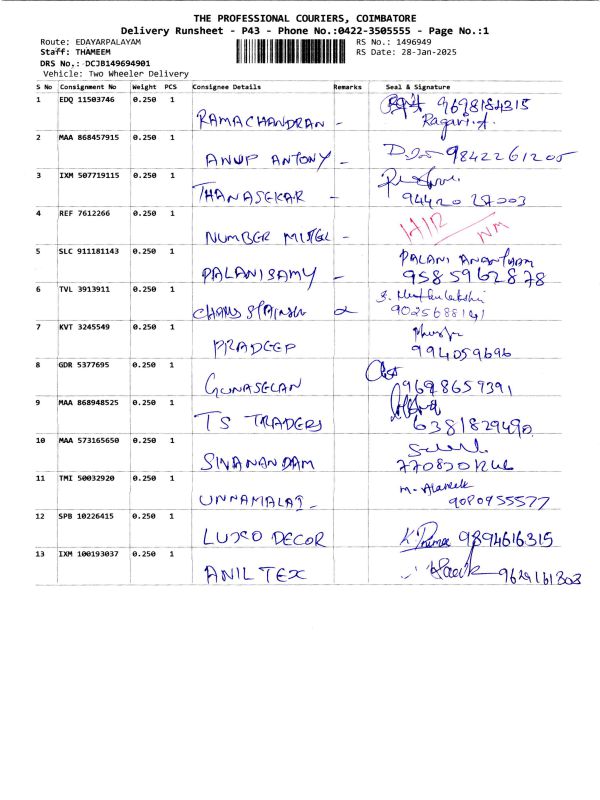 THE PROFESSIONAL COURIERS, COIMBATORE
Delivery Runsheet - P43 - Phone No.:0422-3505555 - Page No.:1
Route: EDAYARPALAYAM RS No.: 1496949
Staff: THAMEEM RS Date: 28-Jan-2025
DRS No.: DCJB149694901
Vehicle: Two Wheeler Delivery
S No Consignment No Weight PCS Consignee Details Remarks Seal & Signature
1 EDQ 11503746 0.250 1 RAMACHANDRAN - 9698184315
Ragavi.A.
2 MAA 868457915 0.250 1 ANUP ANTONY - 9842261205
3 IXM 507719115 0.250 1 THANASEKAR - 94420 27003
4 REF 7612266 0.250 1 NUMBER - NM
5 SLC 911181143 0.250 1 PALANISAMY - PALANI
9585962878
6 TVL 3913911 0.250 1 9025688141
7 KVT 3245549 0.250 1 PRADEEP 994059696
8 GDR 5377695 0.250 1 GUNASELAN 9698659391
9 MAA 868948525 0.250 1 TS TRADERS 6381829490
10 MAA 573165650 0.250 1 SIVANANDAM
11 TMI 50032920 0.250 1 UNNAMALAI - 9080955577
12 SPB 10226415 0.250 1 LUXO DECOR 9894616315
13 IXM 100193037 0.250 1 ANIL TEX 9629161303